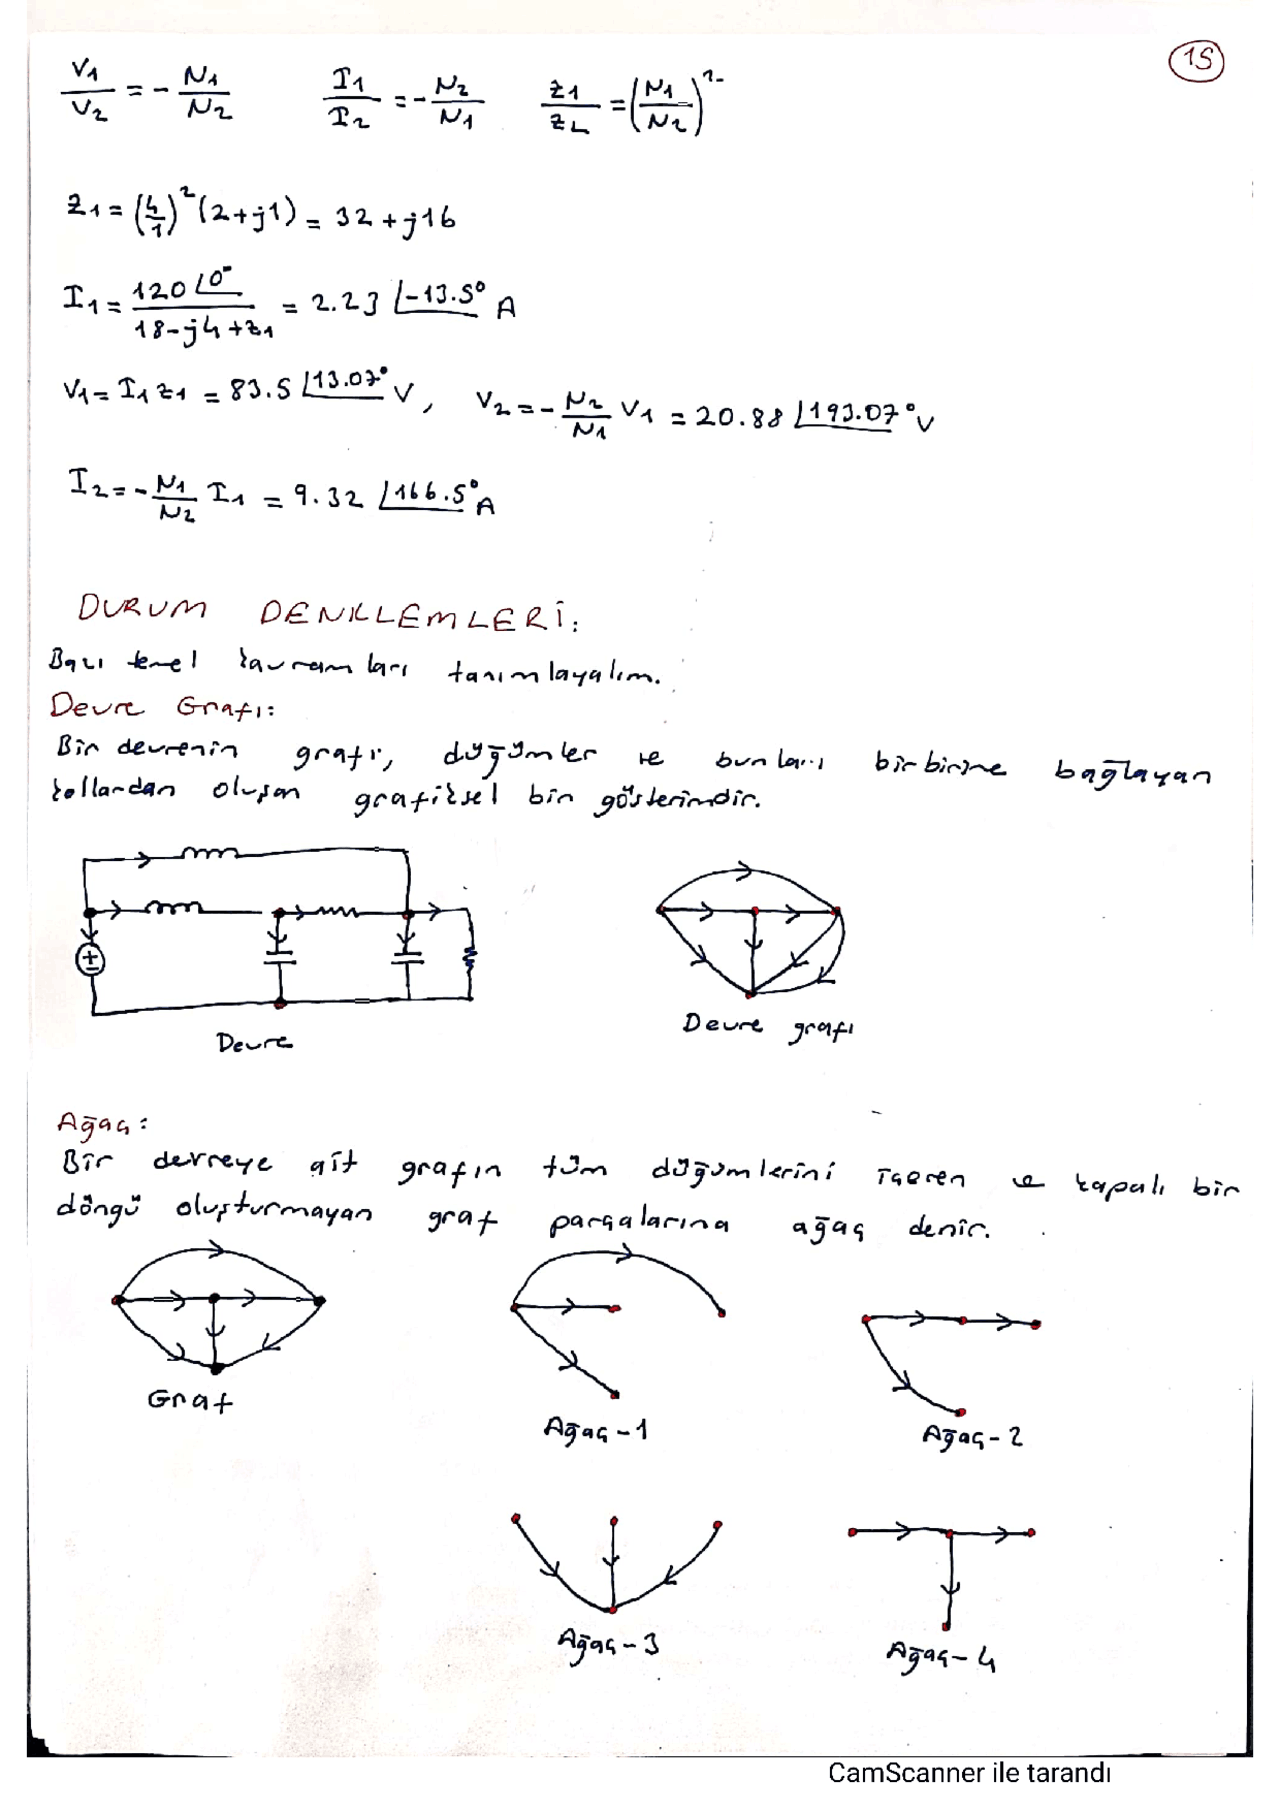 15
V1/V2 = - N1/N2    I1/I2 = - N2/N1    Z1/ZL = (N1/N2)^2
Z1 = (4/1)^2 (2+j1) = 32+j16
I1 = 120∠0°/(18-j4+Z1) = 2.23 ∠-13.5° A
V1 = I1 Z1 = 83.5 ∠13.07° V, V2 = - N2/N1 V1 = 20.88 ∠193.07° V
I2 = - N1/N2 I1 = 9.32 ∠166.5° A
DURUM DENKLEMLERİ:
Bazı temel kavramları tanımlayalım.
Devre Grafı:
Bir devrenin grafı, düğümler ve bunları birbirine bağlayan
kollardan oluşan grafiksel bir gösterimdir.
Devre
Devre grafı
Ağaç:
Bir devreye ait grafın tüm düğümlerini içeren ve kapalı bir
döngü oluşturmayan graf parçalarına ağaç denir.
Graf
Ağaç-1
Ağaç-2
Ağaç-3
Ağaç-4
CamScanner ile tarandı